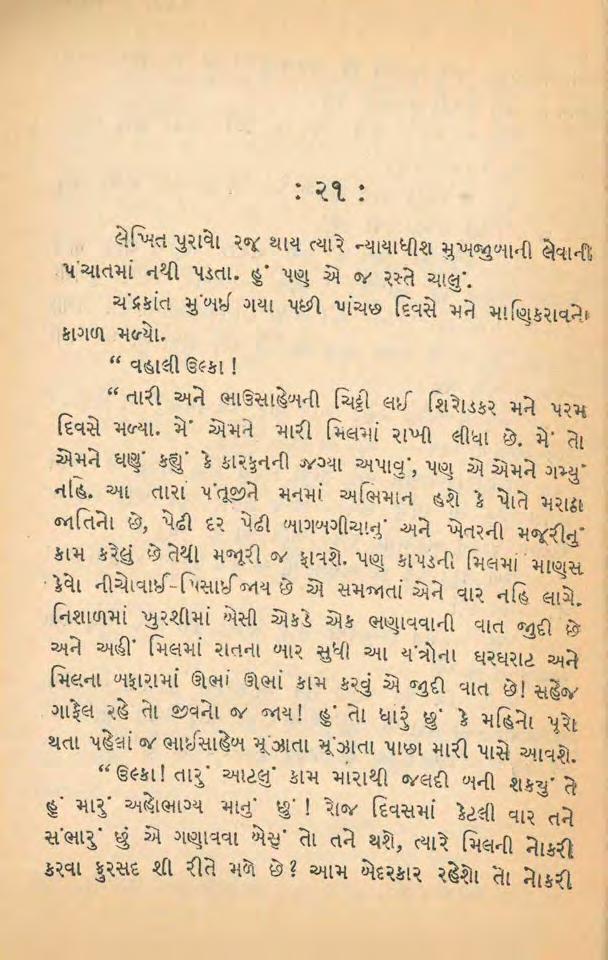 : ૨૧ :
લેખિત પુરાવો રજૂ થાય ત્યારે ન્યાયાધીશ મુખજુબાની લેવાની
પંચાતમાં નથી પડતા. હું પણ એ જ રસ્તે ચાલું.
ચંદ્રકાંત મુંબઈ ગયા પછી પાંચછ દિવસે મને માણિકરાવનો
કાગળ મળ્યો.
“ વહાલી ઉલ્કા !
“ તારી અને ભાઉસાહેબની ચિઠ્ઠી લઈ શિરોડકર મને પરમ
દિવસે મળ્યા. મેં એમને મારી મિલમાં રાખી લીધા છે. મેં તો
એમને ઘણું કહ્યું કે કારકુનની જગ્યા અપાવું, પણ એ એમને ગમ્યું
નહિ. આ તારા પંતૂજીને મનમાં અભિમાન હશે કે પોતે મરાઠા
જાતિનો છે, પેઢી દર પેઢી બાગબગીચાનું અને ખેતરની મજૂરીનું
કામ કરેલું છે તેથી મજૂરી જ ફાવશે. પણ કાપડની મિલમાં માણસ
કેવો નીચોવાઈ-પિસાઈ જાય છે એ સમજાતાં એને વાર નહિ લાગે.
નિશાળમાં ખુરશીમાં બેસી એકડે એક ભણાવવાની વાત જુદી છે
અને અહીં મિલમાં રાતના બાર સુધી આ યંત્રોના ઘરઘરાટ અને
મિલના બફારામાં ઊભાં ઊભાં કામ કરવું એ જુદી વાત છે! સહેજ
ગાફેલ રહે તો જીવનો જ જાય! હું તો ધારું છું કે મહિનો પૂરો
થતા પહેલાં જ ભાઈસાહેબ મૂંઝાતા મૂંઝાતા પાછા મારી પાસે આવશે.
“ ઉલ્કા! તારું આટલું કામ મારાથી જલદી બની શક્યું તે
હું મારું અહોભાગ્ય માનું છું ! રોજ દિવસમાં કેટલી વાર તને
સંભારું છું એ ગણાવવા બેસું તો તને થશે, ત્યારે મિલની નોકરી
કરવા ફુરસદ શી રીતે મળે છે? આમ બેદરકાર રહેશો તો નોકરી